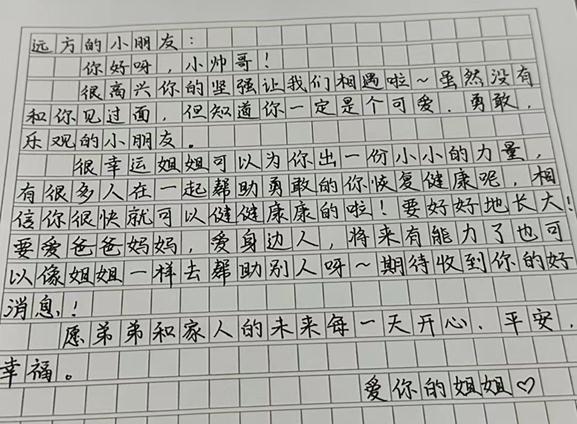 远方的小朋友：
你好呀，小帅哥！
很高兴你的坚强让我们相遇啦～虽然没有
和你见过面，但知道你一定是个可爱、勇敢、
乐观的小朋友。
很幸运姐姐可以为你出一份小小的力量，
有很多人在一起帮助勇敢的你恢复健康呢，相
信你很快就可以健健康康的啦！要好好地长大！
要爱爸爸妈妈，爱身边人，将来有能力了也可
以像姐姐一样去帮助别人呀～期待收到你的好
消息！
愿弟弟和家人的未来每一天开心、平安、
幸福。
爱你的姐姐♡